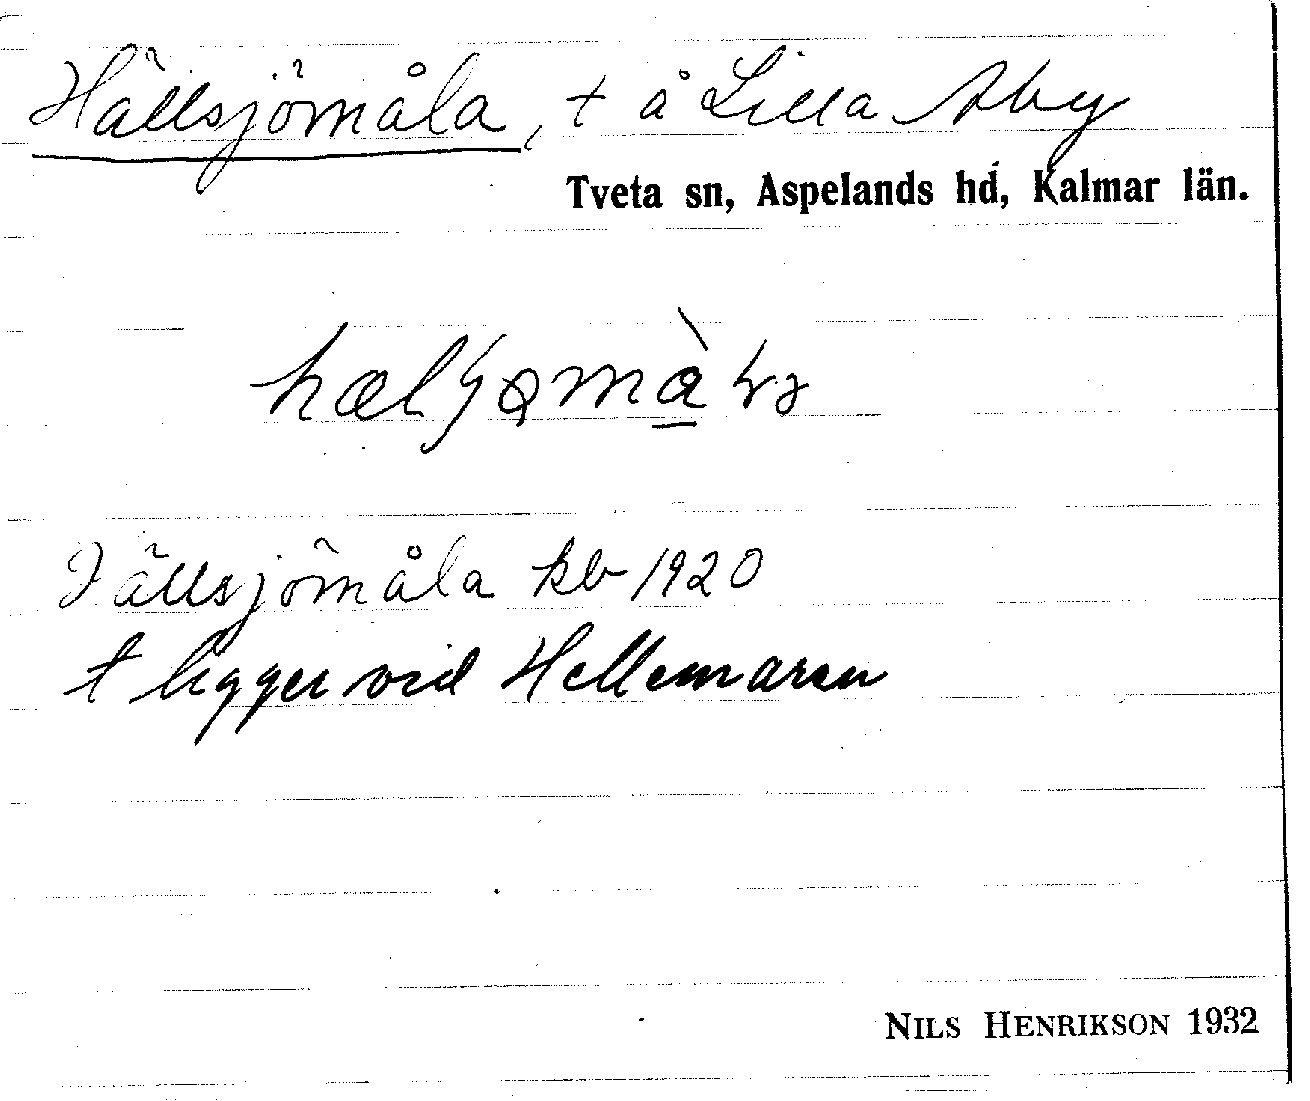 Hällsjömåla, t å Lilla Åby
Tveta sn, Aspelands hd, Kalmar län.
Hällsjömåla kb 1920
t ligger vid Hellemaren
NILS HENRIKSON 1932